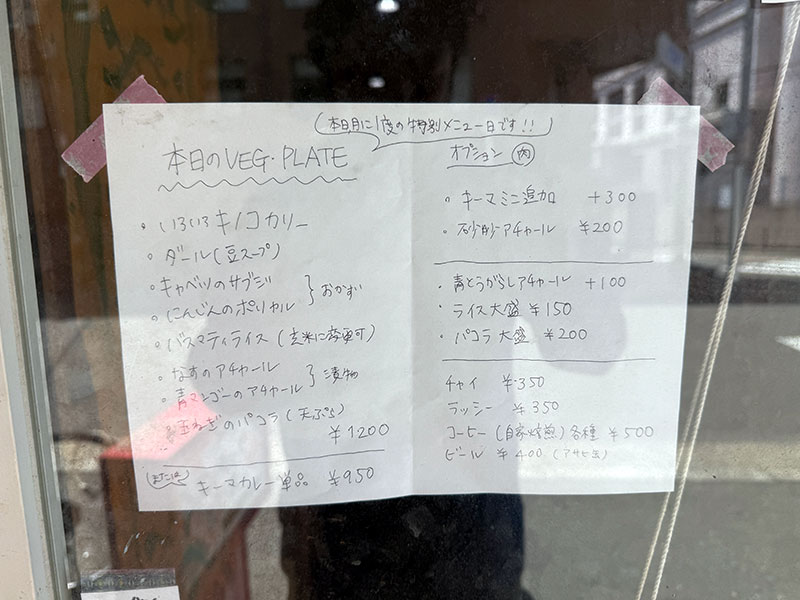 本日月に1度の特別メニュー日です!!
本日のVEG・PLATE
・いろいろキノコカリー
・ダール(豆スープ)
・キャベツのサブジ
・にんじんのポリヤル
おかず
・バスマティライス(玄米に変更可)
・なすのアチャール
・青マンゴーのアチャール
漬物
・玉ねぎのパコラ(天ぷら)
¥1200
または
キーマカレー単品 ¥950
オプション 肉
・キーマミニ追加 +300
・砂肝アチャール ¥200
・青とうがらしアチャール +100
・ライス大盛 ¥150
・パコラ大盛 ¥200
チャイ ¥350
ラッシー ¥350
コーヒー(自家焙煎)各種 ¥500
ビール ¥400(アサヒ缶)